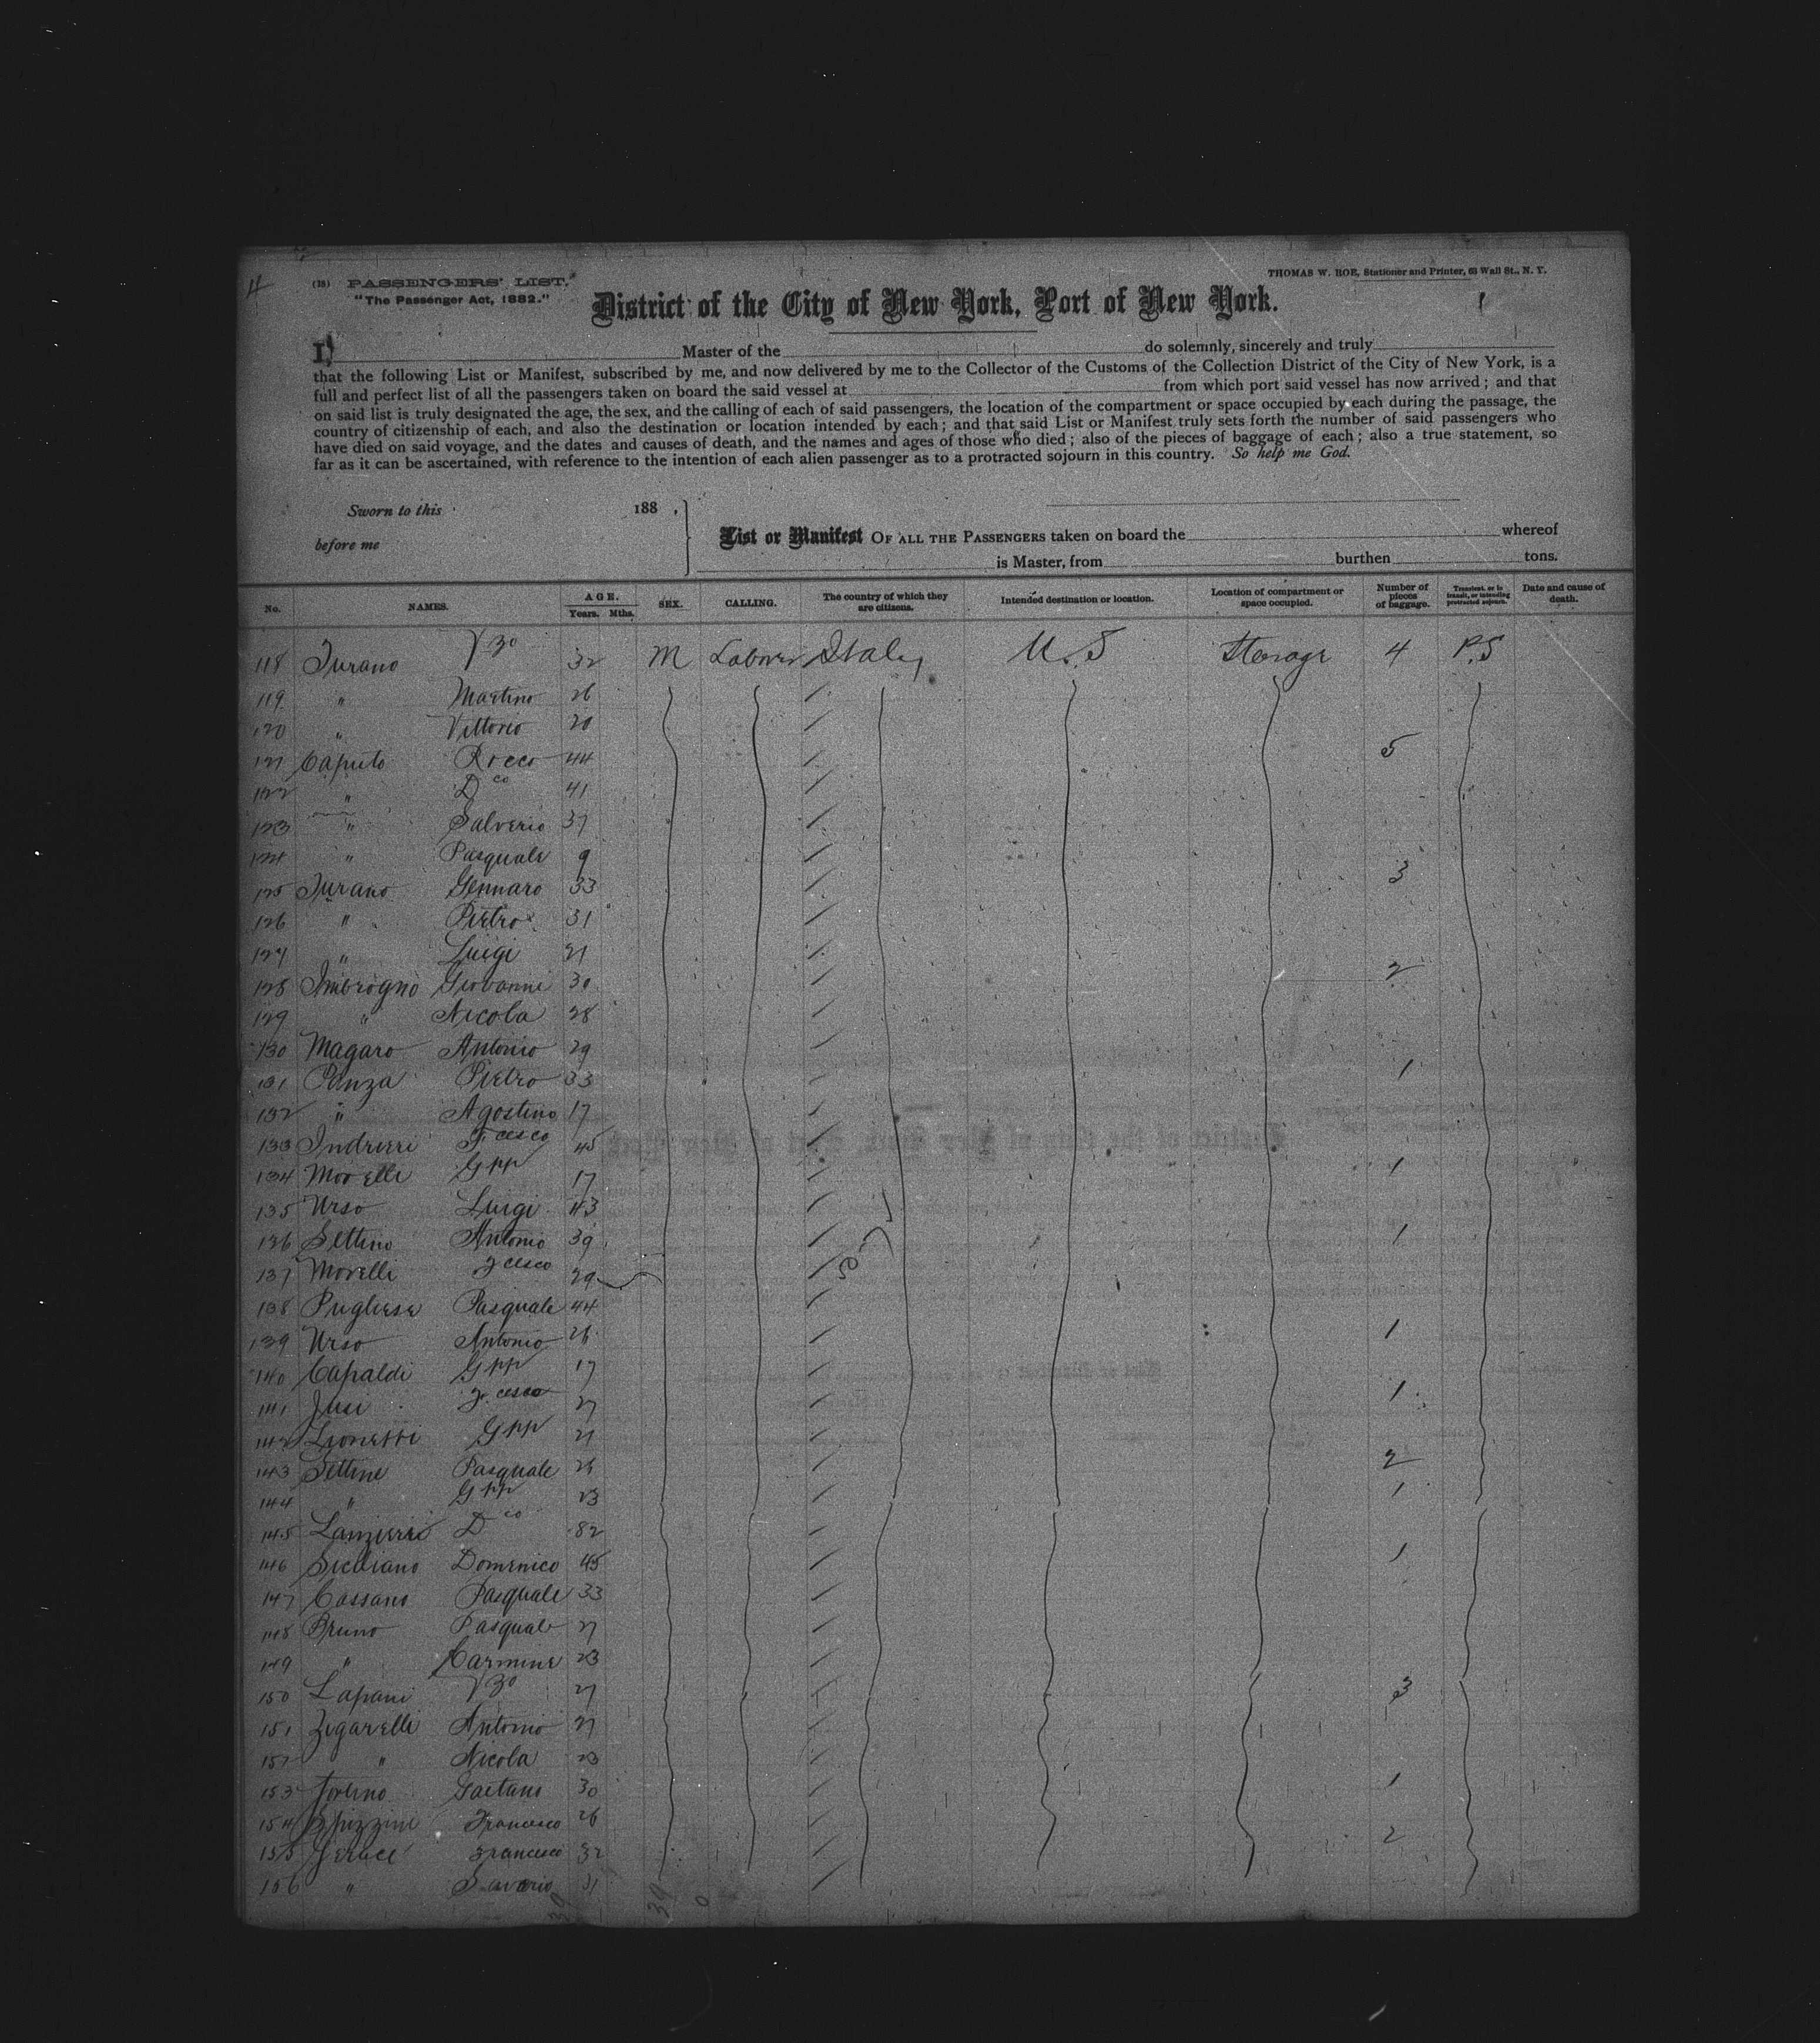 4
(18) PASSENGERS' LIST.
"The Passenger Act, 1882."
THOMAS W. ROE, Stationer and Printer, 63 Wall St., N. Y.
District of the City of New York, Port of New York.
I, Master of the do solemnly, sincerely and truly
that the following List or Manifest, subscribed by me, and now delivered by me to the Collector of the Customs of the Collection District of the City of New York, is a
full and perfect list of all the passengers taken on board the said vessel at from which port said vessel has now arrived; and that
on said list is truly designated the age, the sex, and the calling of each of said passengers, the location of the compartment or space occupied by each during the passage, the
country of citizenship of each, and also the destination or location intended by each; and that said List or Manifest truly sets forth the number of said passengers who
have died on said voyage, and the dates and causes of death, and the names and ages of those who died; also of the pieces of baggage of each; also a true statement, so
far as it can be ascertained, with reference to the intention of each alien passenger as to a protracted sojourn in this country. So help me God.
Sworn to this 188 ,
before me
List or Manifest OF ALL THE PASSENGERS taken on board the whereof
is Master, from burthen tons.
No. NAMES. AGE. Years. Mths. SEX. CALLING. The country of which they are citizens. Intended destination or location. Location of compartment or space occupied. Number of pieces of baggage. Transient, or in transit, or intending protracted sojourn. Date and cause of death.
118 Turano Vzo 32 M Laborer Italy U.S Steerage 4 P.S
119 " Martino 26
120 " Vittorio 20
121 Caputo Rocco 44 5
122 " Dco 41
123 " Salverio 37
124 " Pasquale 9
125 Turano Gennaro 33 3
126 " Pietro 31
127 " Luigi 21
128 Imbrogno Giovanni 30 2
129 " Nicola 28
130 Magaro Antonio 29
131 Panza Pietro 33 1
132 " Agostino 17
133 Indrieri Fcesco 45
134 Morelli Gpp 17 1
135 Urso Luigi 43
136 Settino Antonio 39 1
137 Morelli Fcesco 29
138 Pugliese Pasquale 44
139 Urso Antonio 26 1
140 Capaldi Gpp 17
141 Jusi Fcesco 27 1
142 Lionetti Gpp 21
143 Settine Pasquale 26 2
144 " Gpp 23 1
145 Lanzieri Dco 32
146 Siciliano Domenico 45 1
147 Cassano Pasquale 33
148 Bruno Pasquale 27
149 " Carmine 23
150 Lapani Vzo 27 3
151 Zigarelli Antonio 27
152 " Nicola 23
153 Gaetano 30 1
154 Spizzini Francesco 26
155 Gerace Francesco 32 2
156 " Saverio 31
39 39 0